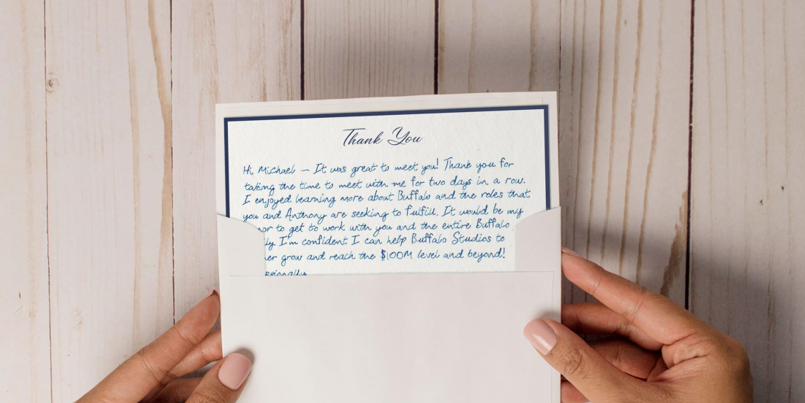 Thank You
Hi Michael — It was great to meet you! Thank you for
taking the time to meet with me for two days in a row.
I enjoyed learning more about Buffalo and the roles that
you and Anthony are seeking to fulfill. It would be my
to get to work with you and the entire Buffalo
I'm confident I can help Buffalo Studios to
grow and reach the $100M level and beyond!